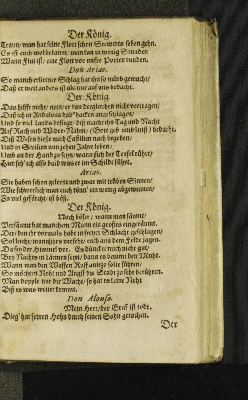 Der König.
Traun/ man hat seine Flott schon Gewarts sehen gehn.
Es ist auch wol bekannt/ man kan in wenig Stunden
Wann Flut ist/ eine Flott vor unsre Porten runden.
Don Arias.
So manch erlittner Schlag hat ihn so mürb gemacht/
Daß er weit anders ist als nur auf uns bedacht.
Der König
Das hilfft nicht/ nein/ er kan dergleichen nicht vertragen/
Daß ich in Andalous hab' vor angeschlagen/
Und so viel Lands besiegt/ diß macht ihn Tag und Nacht
Auf Rach und Wider-Nahm/ (Gott geb umbsunst) bedacht.
Diß Wesen hieße mich Castilien nach begeben/
Und in Sevilien nun zehen Jahre leben/
Umb an der Hand zu seyn/ wann sich der Teufel rührt/
Hier seh' ich also bald was er im Schilde führt.
Arias.
Sie haben schon gelernt und zwar mit ihren Sinnen/
Wie schwerlich man euch könn' ein wenig abgewinnen/
Zu viel geförcht/ ist böß.
Der König.
Noch böser/ wann man säumt/
Versäumt hat manchem Mann ein grosses eingeräumt.
Der/ den ihr vormals habt in enger Schlacht geschlagen/
Solt leicht/ wann ihrs versehr/ euch aus dem Felde jagen.
Da sey der Himmel vor. Es düncket mich nicht gut/
Bey Nachts in Lärmen seyn/ dann es benimt den Muht.
Wann man der Waffen Ruff anitzo solte führen/
So möchten Noht und Angst die Stadt zu sehr berühren.
Man dopple nur die Wache/ so hat es keine Noht
Biß es was weiter kommt.
Don Alonso.
Mein Herr/ der Graf ist todt.
Dieg' hat seinen Hohn durch seinen Sohn gerochen.
Der